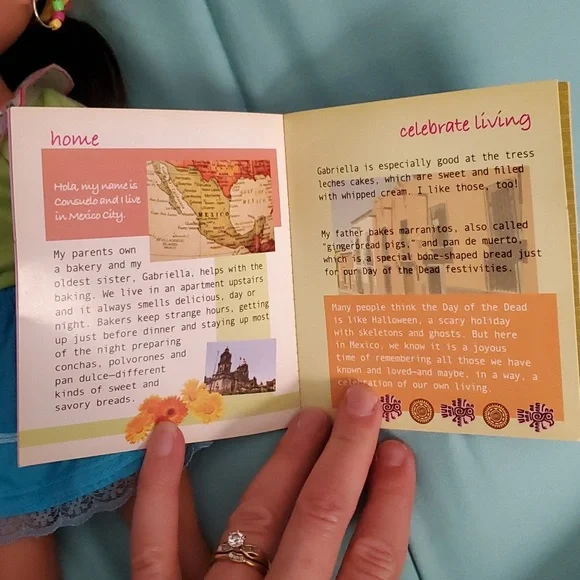 home
Hola, my name is
Consuelo and I live
in Mexico City.
MEXICO
My parents own
a bakery and my
oldest sister, Gabriella, helps with the
baking. We live in an apartment upstairs
and it always smells delicious, day or
night. Bakers keep strange hours, getting
up just before dinner and staying up most
of the night preparing
conchas, polvorones and
pan dulce—different
kinds of sweet and
savory breads.
celebrate living
Gabriella is especially good at the tress
leches cakes, which are sweet and filled
with whipped cream. I like those, too!
My father bakes marranitos, also called
"gingerbread pigs," and pan de muerto,
which is a special bone-shaped bread just
for our Day of the Dead festivities.
Many people think the Day of the Dead
is like Halloween, a scary holiday
with skeletons and ghosts. But here
in Mexico, we know it is a joyous
time of remembering all those we have
known and loved—and maybe, in a way, a
celebration of our own living.